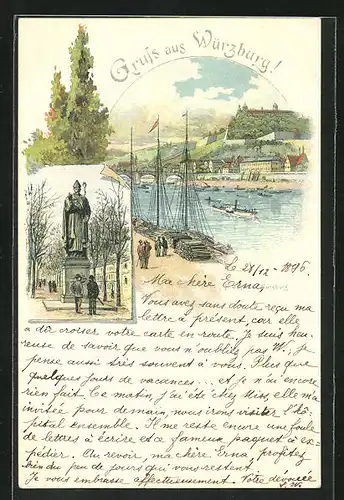 Gruss aus Würzburg!
Le 28/12 - 1896.
Ma chère Erna,
Vous avez sans doute reçu ma
lettre à présent, car elle
a dû croiser votre carte en route. Je suis heu-
reuse de savoir que vous n'oubliez pas W., je
pense aussi très souvent à vous. Plus que
quelques jours de vacances... et je n'ai encore
rien fait. Ce matin, j'ai été chez Miss elle m'a
invitée pour demain, nous irons visiter l'Hô-
pital ensemble. Il me reste encore une foule
de lettres à écrire et ce fameux paquet à ex-
pédier. Au revoir, ma chère Erna, profitez
bien du peu de jours qui vous restent.
Je vous embrasse affectueusement. Votre dévouée